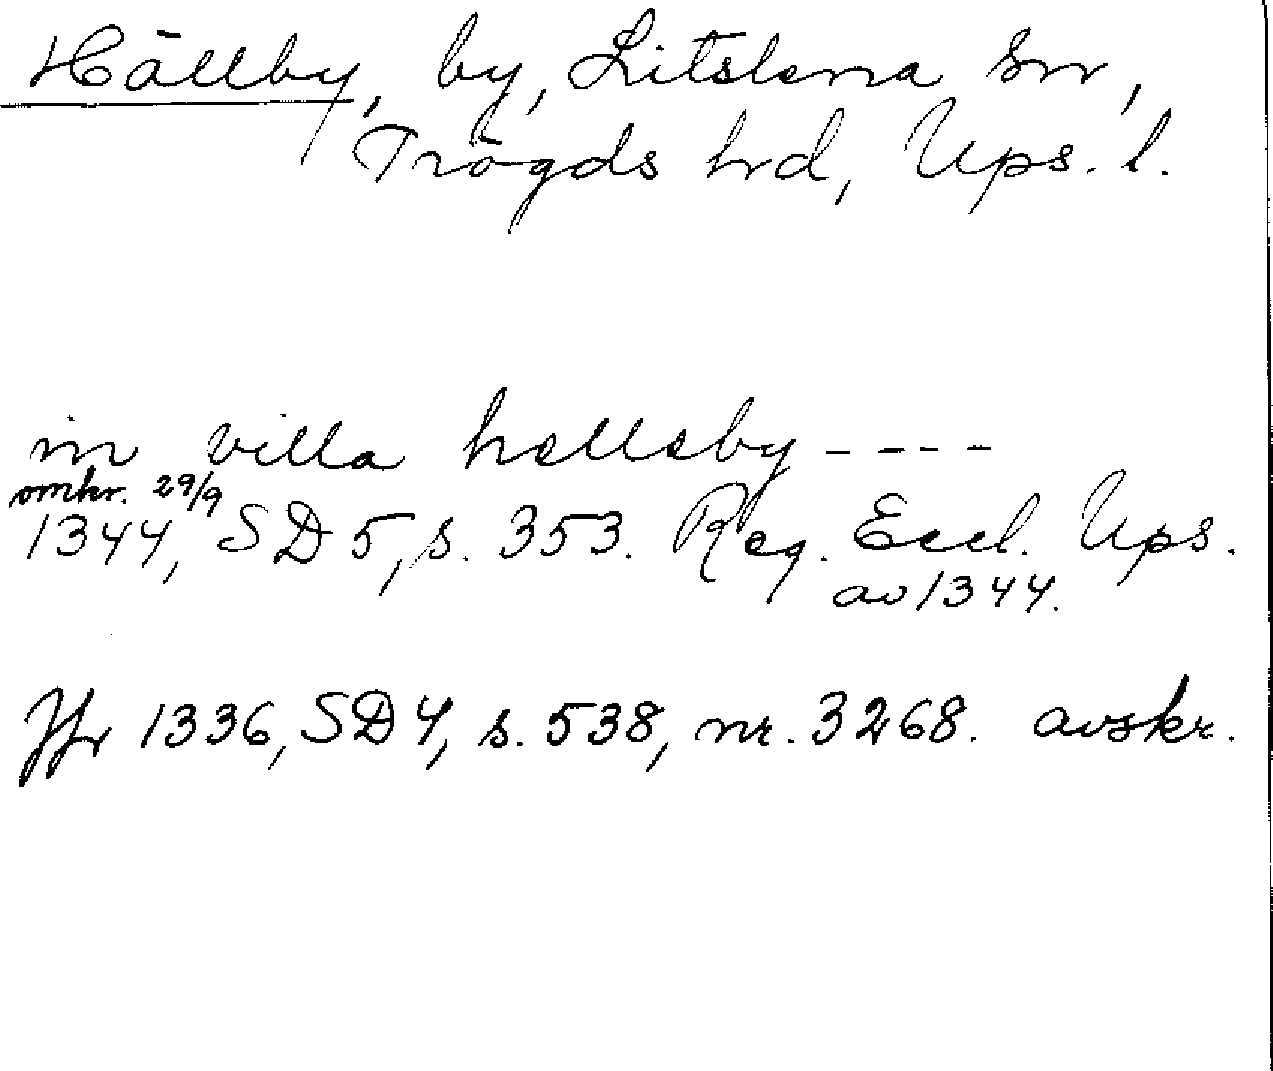 Hällby, by, Litslena sn,
Trögds hrd, Ups. l.
in villa hælleby ----
omkr. 29/9
1344, SD 5, s. 353. Reg. Eccl. Ups.
av 1344.
Jfr 1336, SD 4, s. 538, nr. 3268. avskr.